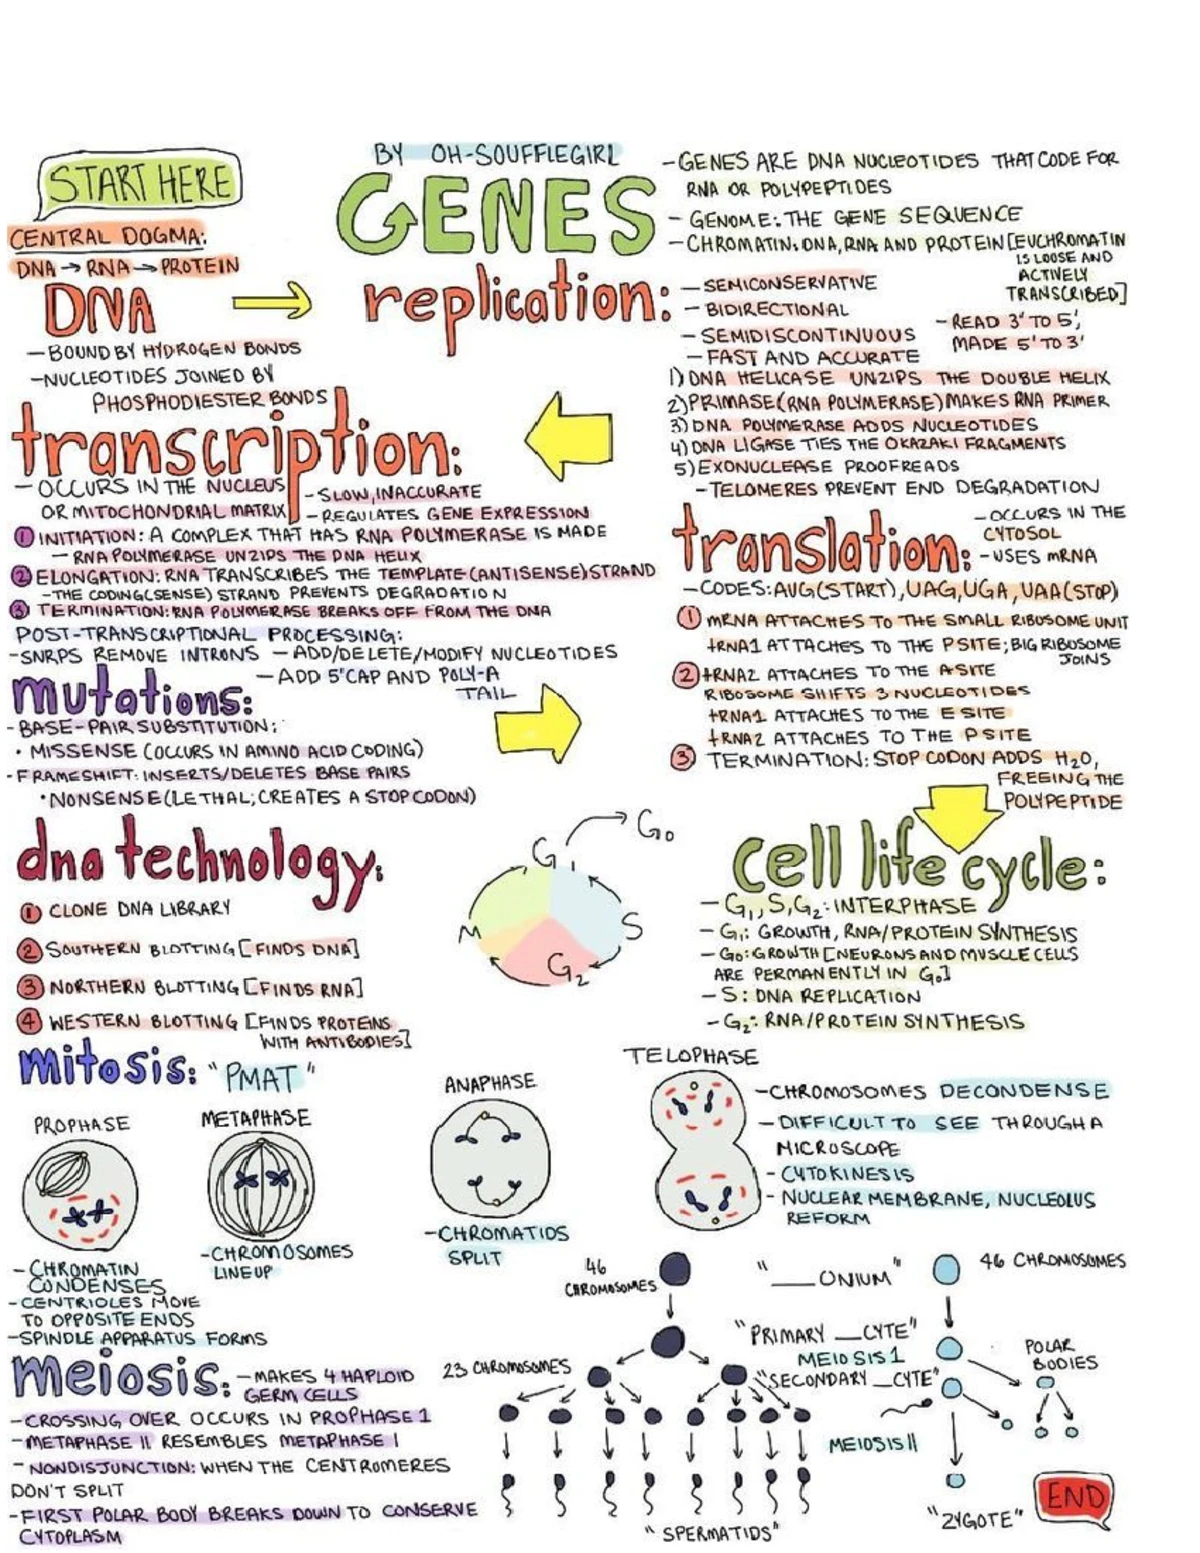 START HERE
CENTRAL DOGMA:
DNA → RNA → PROTEIN
DNA
- BOUND BY HYDROGEN BONDS
- NUCLEOTIDES JOINED BY
PHOSPHODIESTER BONDS
BY OH-SOUFFLEGIRL
GENES
- GENES ARE DNA NUCLEOTIDES THAT CODE FOR
RNA OR POLYPEPTIDES
- GENOME: THE GENE SEQUENCE
- CHROMATIN: DNA, RNA AND PROTEIN [EUCHROMATIN
IS LOOSE AND
ACTIVELY
TRANSCRIBED]
replication:
- SEMICONSERVATIVE
- BIDIRECTIONAL
- SEMIDISCONTINUOUS
- FAST AND ACCURATE
- READ 3' TO 5',
MADE 5' TO 3'
1) DNA HELICASE UNZIPS THE DOUBLE HELIX
2) PRIMASE (RNA POLYMERASE) MAKES RNA PRIMER
3) DNA POLYMERASE ADDS NUCLEOTIDES
4) DNA LIGASE TIES THE OKAZAKI FRAGMENTS
5) EXONUCLEASE PROOFREADS
- TELOMERES PREVENT END DEGRADATION
transcription:
- OCCURS IN THE NUCLEUS
OR MITOCHONDRIAL MATRIX
- SLOW, INACCURATE
- REGULATES GENE EXPRESSION
1 INITIATION: A COMPLEX THAT HAS RNA POLYMERASE IS MADE
- RNA POLYMERASE UNZIPS THE DNA HELIX
2 ELONGATION: RNA TRANSCRIBES THE TEMPLATE (ANTISENSE) STRAND
- THE CODING (SENSE) STRAND PREVENTS DEGRADATION
3 TERMINATION: RNA POLYMERASE BREAKS OFF FROM THE DNA
POST-TRANSCRIPTIONAL PROCESSING:
- SNRPS REMOVE INTRONS - ADD/DELETE/MODIFY NUCLEOTIDES
- ADD 5' CAP AND POLY-A
TAIL
translation:
- OCCURS IN THE
CYTOSOL
- USES mRNA
- CODES: AUG (START), UAG, UGA, UAA (STOP)
1 mRNA ATTACHES TO THE SMALL RIBOSOME UNIT
tRNA1 ATTACHES TO THE P SITE; BIG RIBOSOME
JOINS
2 tRNA2 ATTACHES TO THE A SITE
RIBOSOME SHIFTS 3 NUCLEOTIDES
tRNA1 ATTACHES TO THE E SITE
tRNA2 ATTACHES TO THE P SITE
3 TERMINATION: STOP CODON ADDS H2O,
FREEING THE
POLYPEPTIDE
mutations:
- BASE-PAIR SUBSTITUTION:
• MISSENSE (OCCURS IN AMINO ACID CODING)
- FRAMESHIFT: INSERTS/DELETES BASE PAIRS
• NONSENSE (LETHAL; CREATES A STOP CODON)
dna technology:
1 CLONE DNA LIBRARY
2 SOUTHERN BLOTTING [FINDS DNA]
3 NORTHERN BLOTTING [FINDS RNA]
4 WESTERN BLOTTING [FINDS PROTEINS
WITH ANTIBODIES]
G1
G0
S
G2
M
cell life cycle:
- G1, S, G2: INTERPHASE
- G1: GROWTH, RNA/PROTEIN SYNTHESIS
- G0: GROWTH [NEURONS AND MUSCLE CELLS
ARE PERMANENTLY IN G0]
- S: DNA REPLICATION
- G2: RNA/PROTEIN SYNTHESIS
mitosis: "PMAT"
PROPHASE
- CHROMATIN
CONDENSES
- CENTRIOLES MOVE
TO OPPOSITE ENDS
- SPINDLE APPARATUS FORMS
METAPHASE
- CHROMOSOMES
LINE UP
ANAPHASE
- CHROMATIDS
SPLIT
TELOPHASE
- CHROMOSOMES DECONDENSE
- DIFFICULT TO SEE THROUGH A
MICROSCOPE
- CYTOKINESIS
- NUCLEAR MEMBRANE, NUCLEOLUS
REFORM
meiosis:
- MAKES 4 HAPLOID
GERM CELLS
- CROSSING OVER OCCURS IN PROPHASE 1
- METAPHASE II RESEMBLES METAPHASE I
- NONDISJUNCTION: WHEN THE CENTROMERES
DON'T SPLIT
- FIRST POLAR BODY BREAKS DOWN TO CONSERVE
CYTOPLASM
46
CHROMOSOMES
"___ONIUM"
46 CHROMOSOMES
"PRIMARY __CYTE"
MEIOSIS 1
23 CHROMOSOMES
"SECONDARY _CYTE"
POLAR
BODIES
MEIOSIS II
"SPERMATIDS"
"ZYGOTE"
END